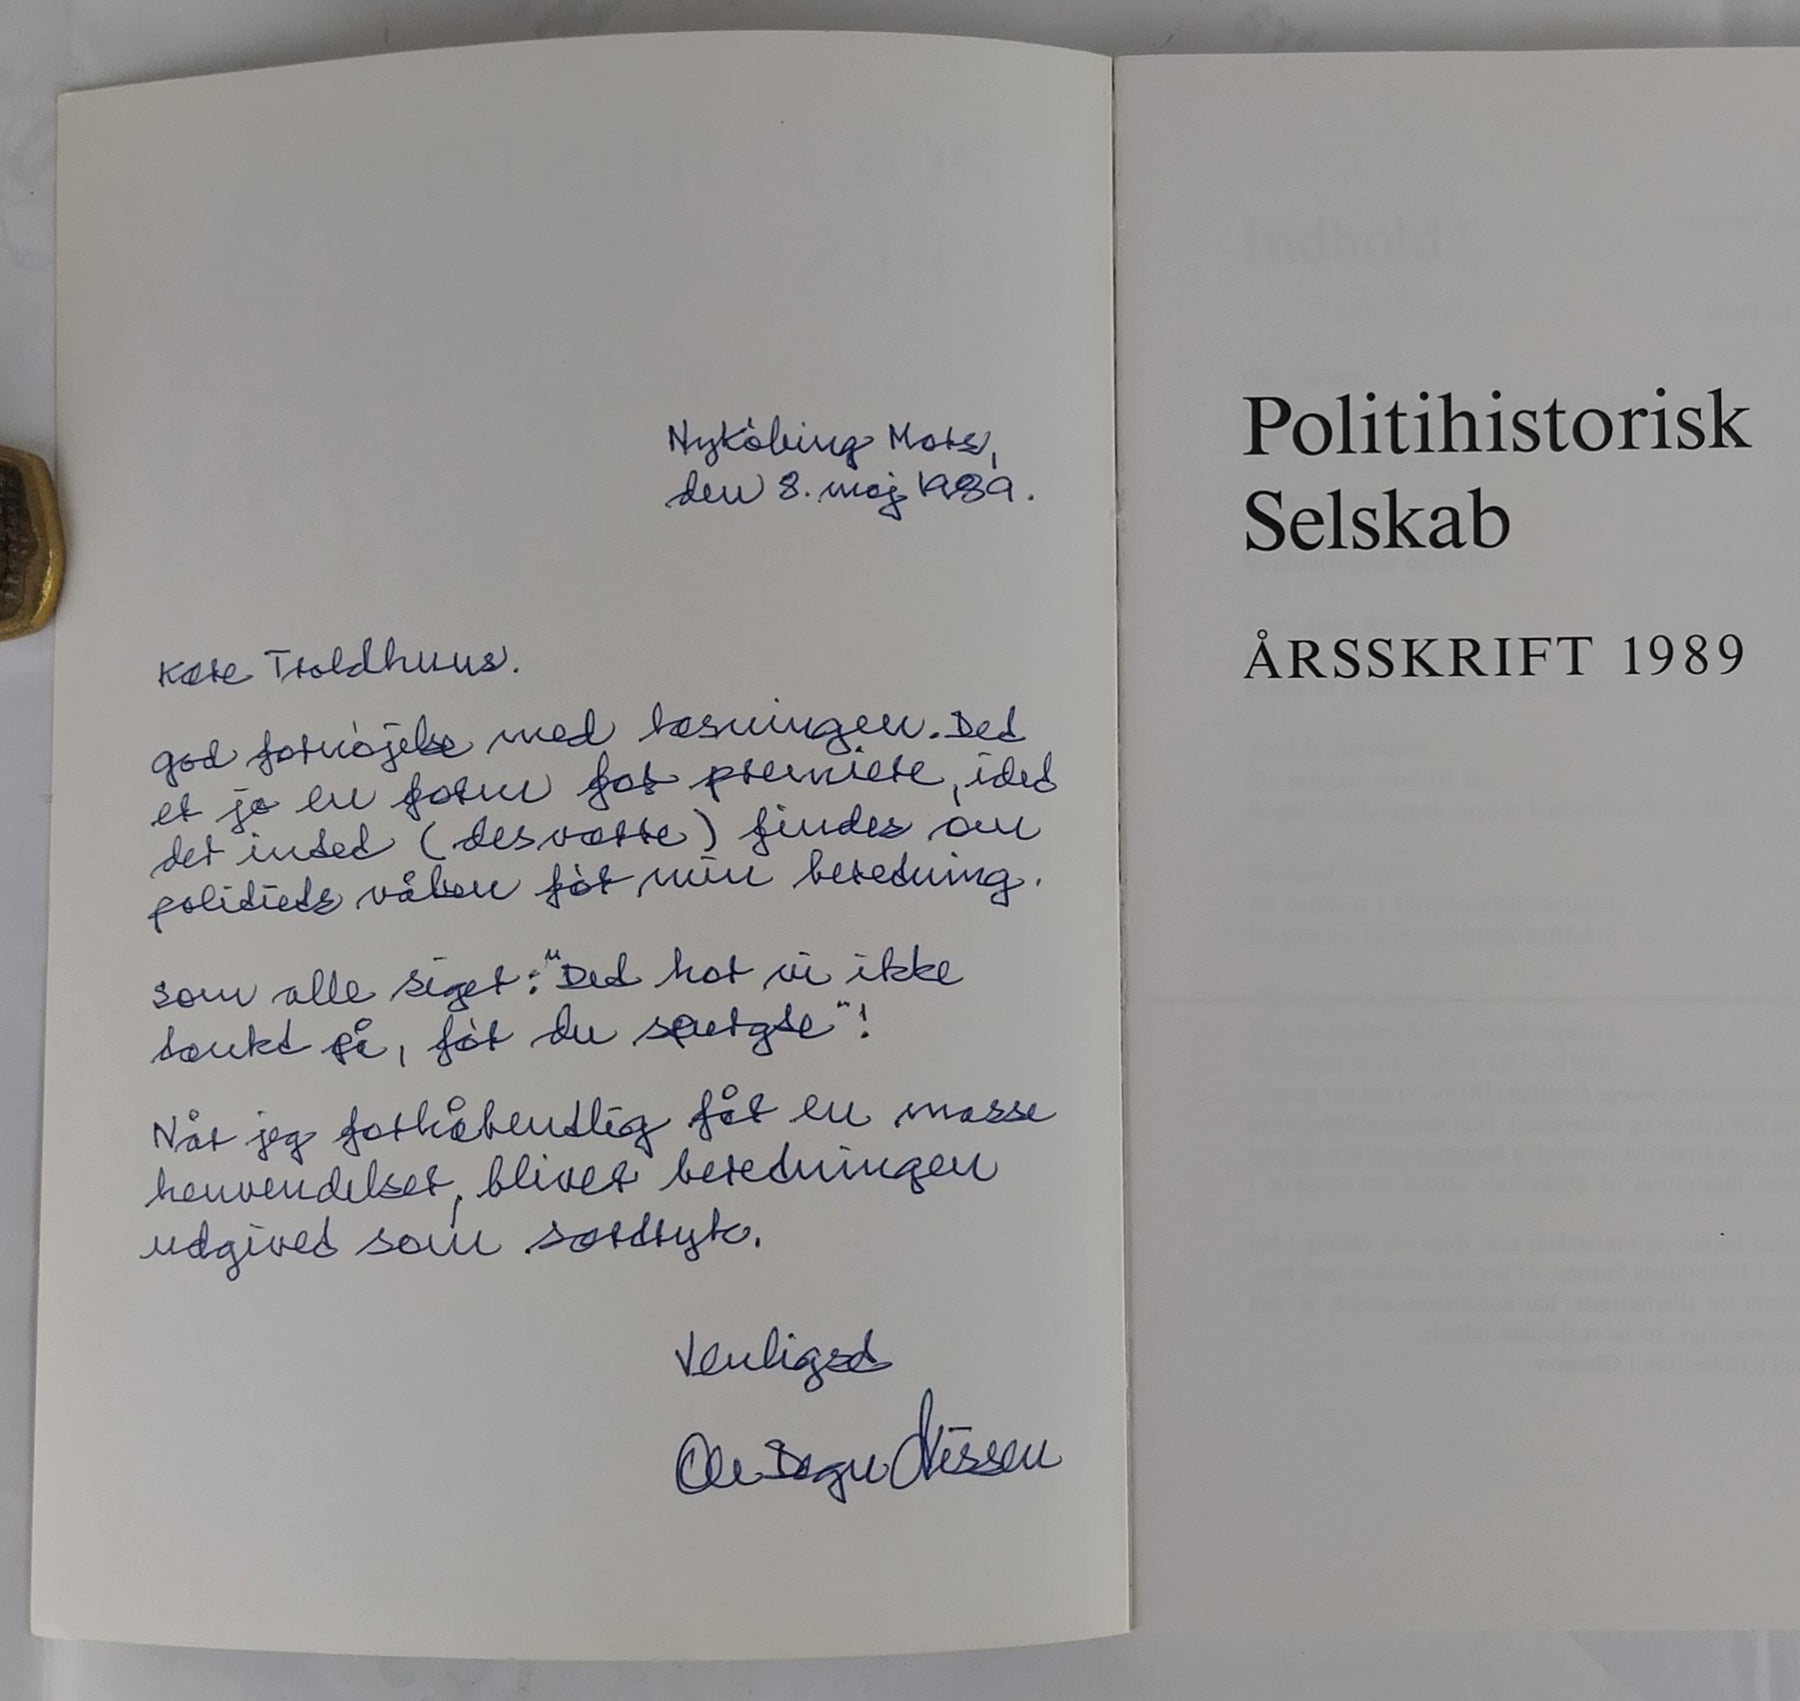 Nykøbing Mors,
den 8. maj 1989.
Kære Troldhuus.
god fornøjelse med læsningen. Det
er jo en form for premiere, idet
der intet (desværre) findes om
politiets våben før min beretning.
som alle siger: "Det har vi ikke
tænkt på, før du spurgte"!
Når jeg forhåbentlig får en masse
henvendelser, bliver beretningen
udgivet som særtryk.
Venligst
Ole Degn Nissen
Indhold
Politihistorisk
Selskab
ÅRSSKRIFT 1989